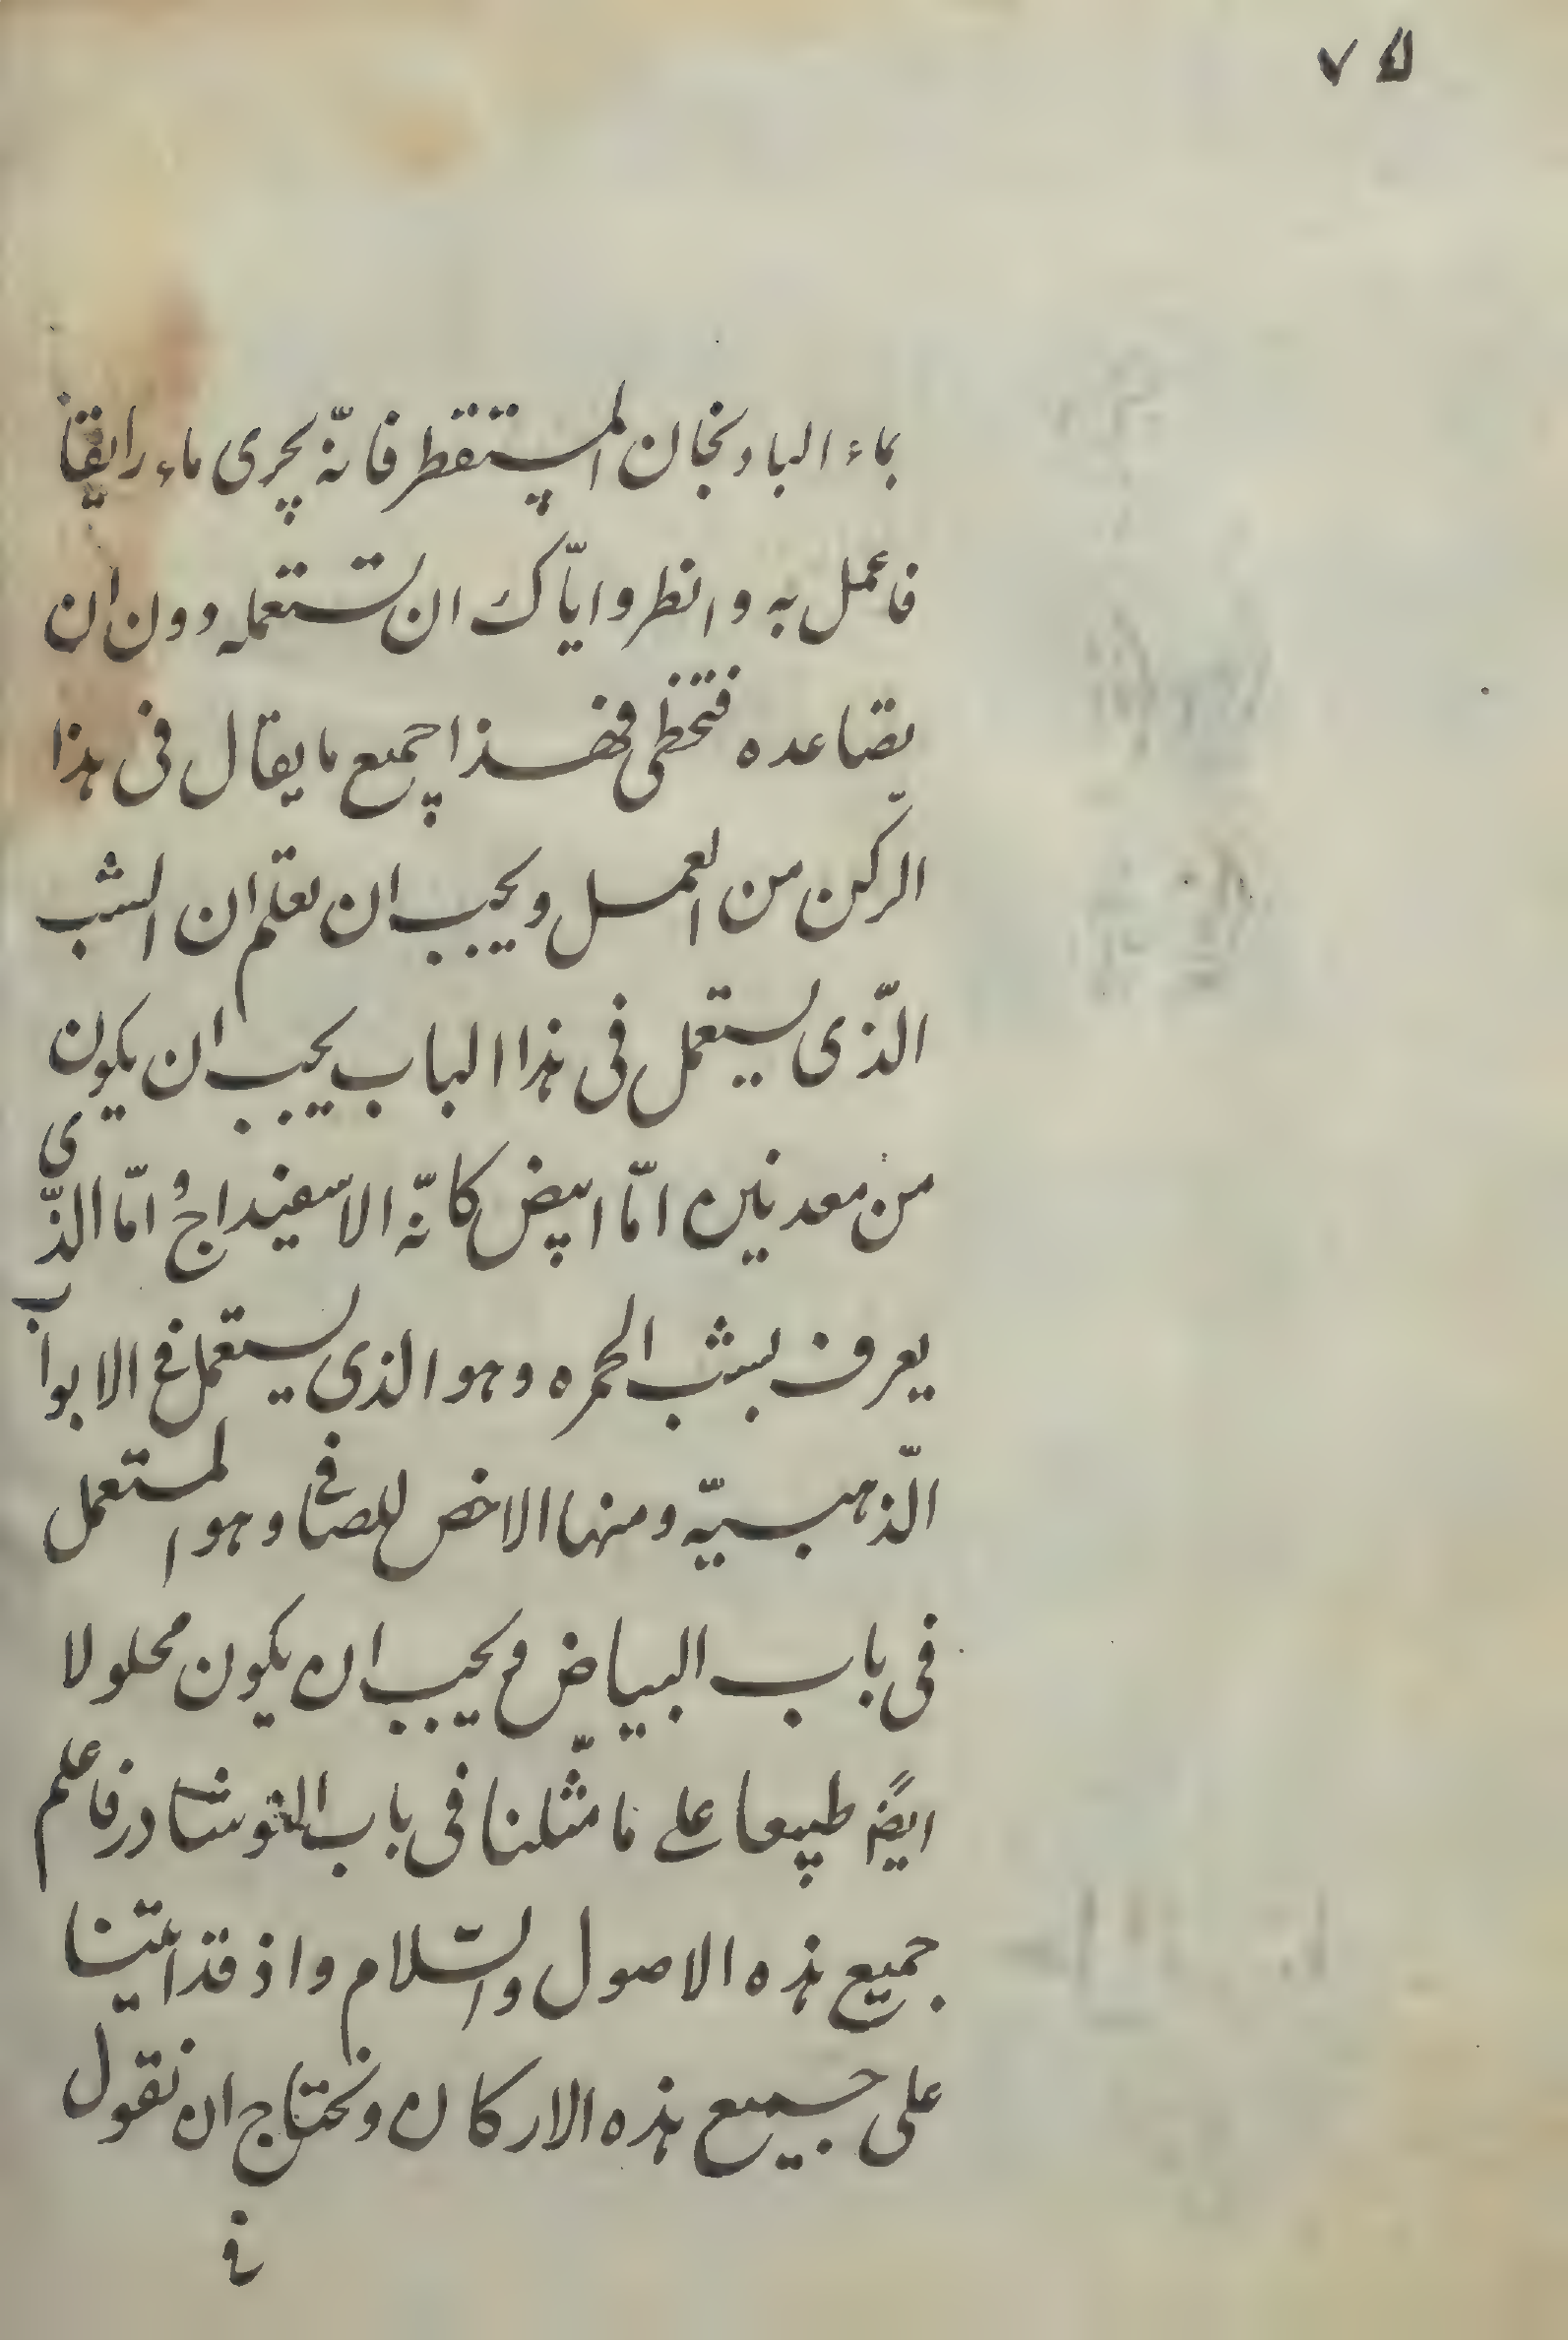 ٧۵
بماء الباد نجان المستقطر فانّه يجرى ماء رايقاً
فاعمل به وانظر وايّاك ان تستعمله دون ان
يصاعده فتخطى فهذا جميع ما يقال فى هذا
الركن من العمل ويجب ان تعلم ان الشب
الّذى يستعمل فى هذا الباب يجب ان يكون
من معدنين امّا ابيض كانّه الاسفيداج وامّا الذّى
يعرف بشب الحمره وهو الذى يستعمل فى الابواب
الّذهبيّه ومنها الاخص للصافى وهو المستعمل
فى باب البياض ويجب ان يكون محلولا
ايضاً طبيعا على ما مثّلنا فى باب النوشادر فاعلم
جميع هذه الاصول والسّلام واذ قد اتينا
على جميع هذه الاركان ونحتاج ان نقول
فى